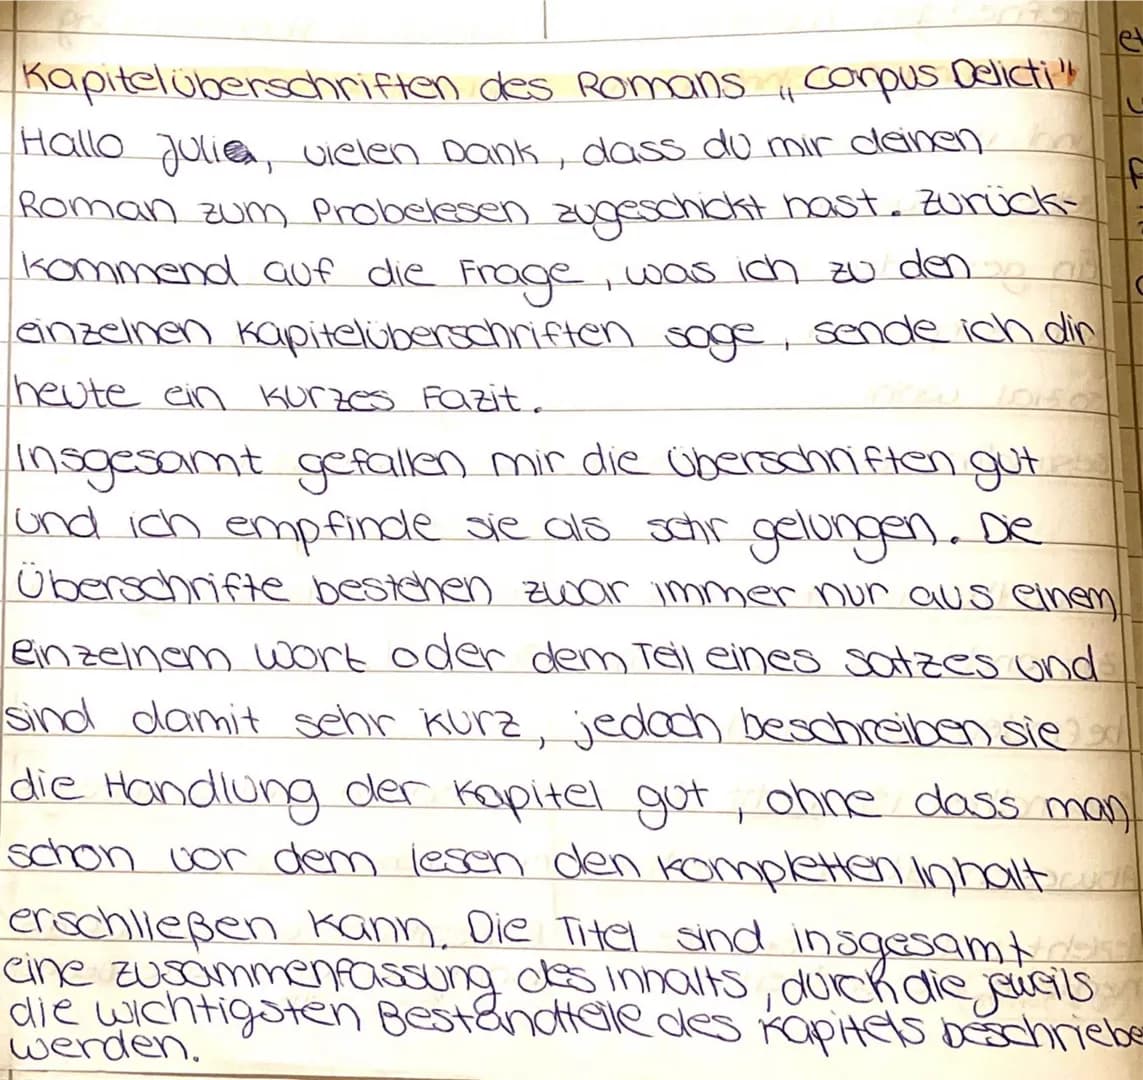 Kapitelüberschriften des Romans „Corpus Delicti"
Hallo Julie, vielen Dank, dass du mir deinen
Roman zum Probelesen zugeschickt hast. Zurück-
kommend auf die Frage, was ich zu den
einzelnen Kapitelüberschriften sage, sende ich dir
heute ein kurzes Fazit.
Insgesamt gefallen mir die Überschriften gut
und ich empfinde sie als sehr gelungen. Die
Überschrifte bestehen zwar immer nur aus einem
einzelnem Wort oder dem Teil eines Satzes und
sind damit sehr kurz, jedoch beschreiben sie
die Handlung der Kapitel gut, ohne dass man
schon vor dem lesen den kompletten Inhalt
erschließen kann. Die Titel sind insgesamt
eine Zusammenfassung des Inhalts, durch die jeweils
die wichtigsten Bestandteile des Kapitels beschriebe
werden.